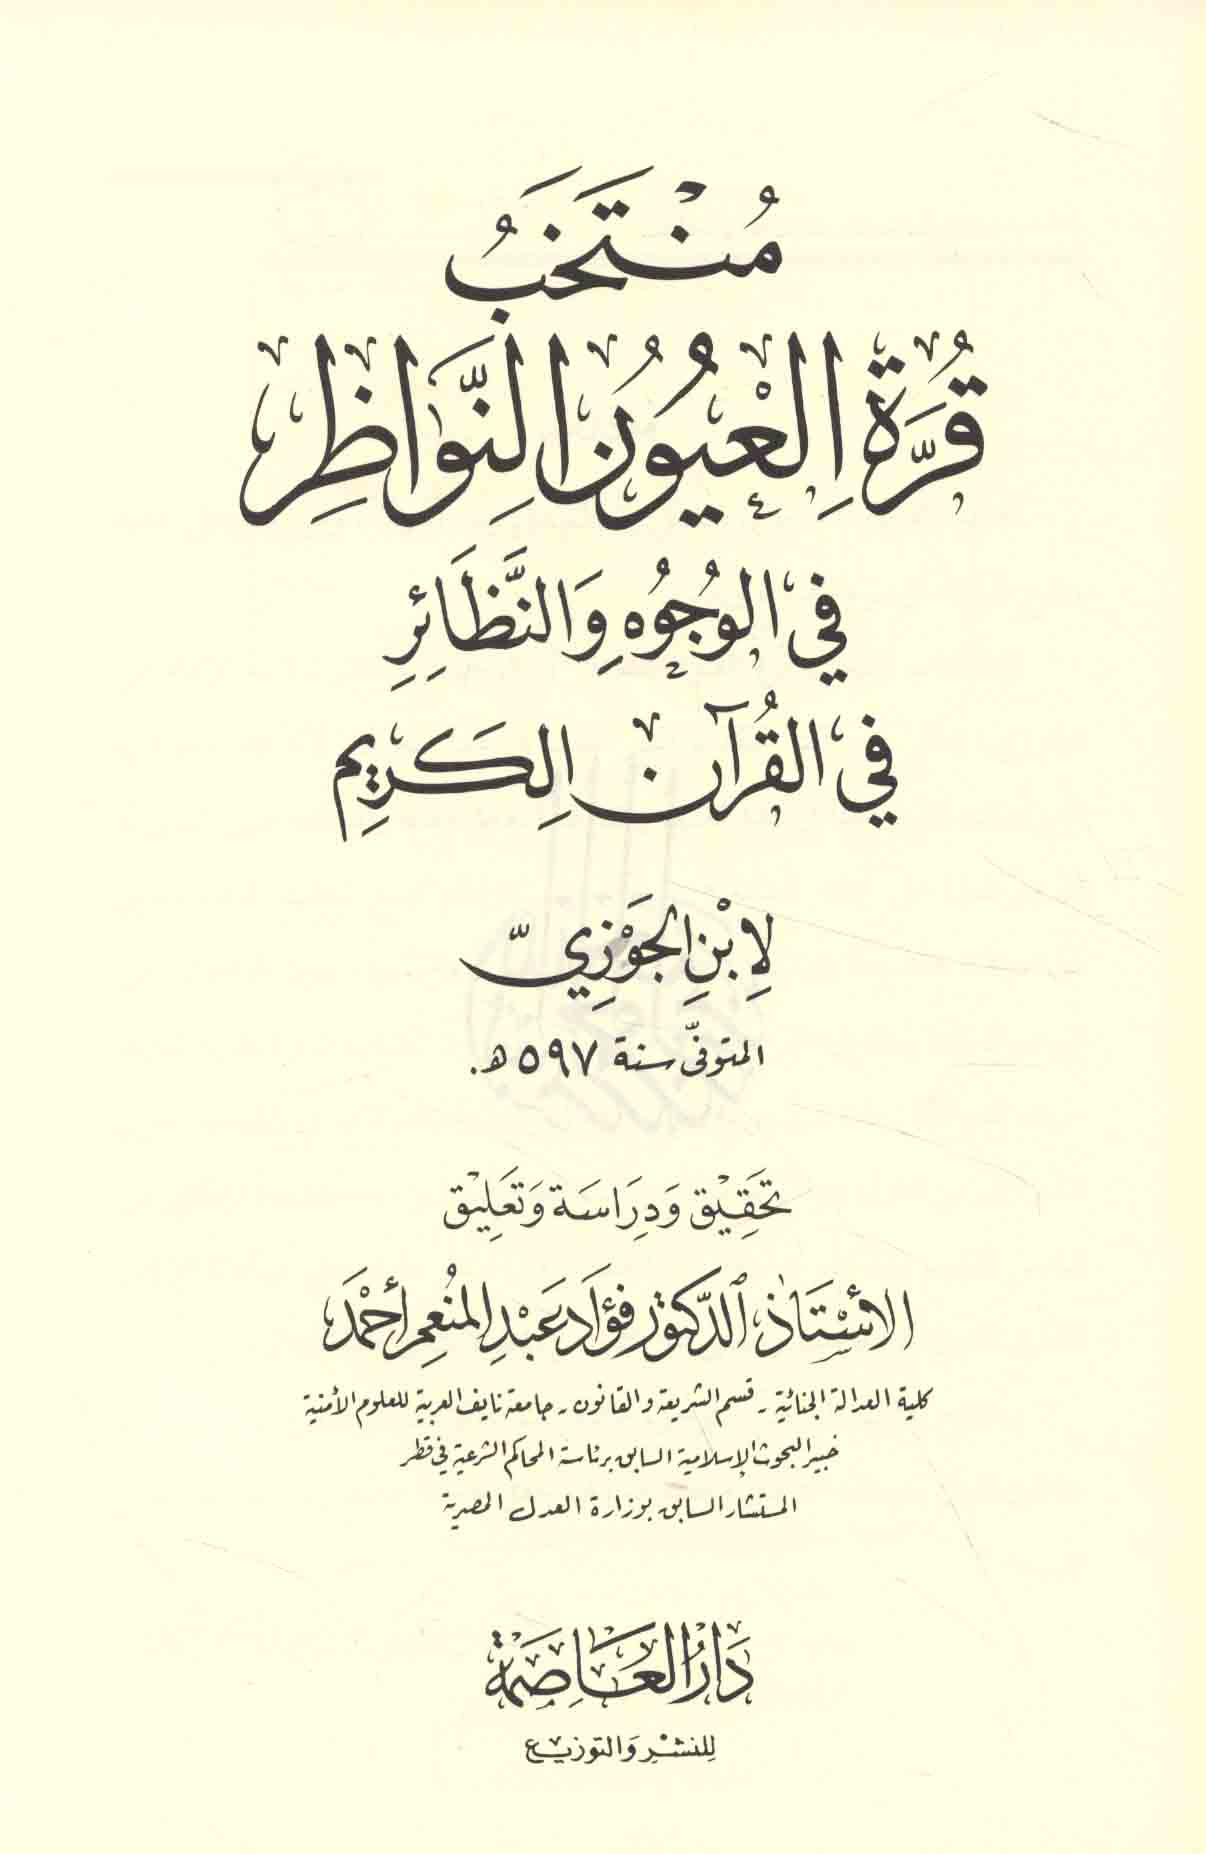 مُنْتَخَبُ
قُرَّةِ الْعُيُونِ النَّوَاظِرِ
فِي الوُجُوهِ وَالنَّظَائِرِ
فِي القُرآنِ الكَرِيمِ
لِابْنِ الجَوْزِيِّ
المتوفّى سنة ٥٩٧ هـ.
تَحْقِيْق وَدِرَاسَة وَتَعلِيْق
الأُسْتَاذ الدَّكتور فُؤَاد عَبْدِ المُنعِم أَحْمَد
كلية العدالة الجنائية - قسم الشريعة والقانون - جامعة نايف العربية للعلوم الأمنية
خبير البحوث الإسلامية السابق برئاسة المحاكم الشرعية في قطر
المستشار السابق بوزارة العدل المصرية
دَارُ العَاصِمَة
لِلنشْرِ وَالتوزيْع